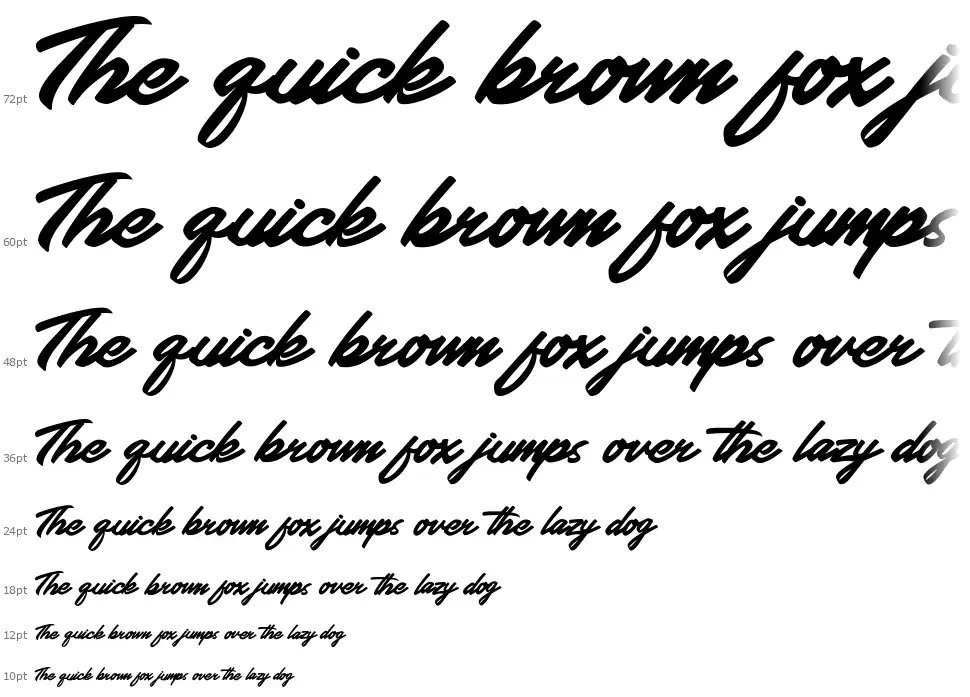 72pt The quick brown fox j
60pt The quick brown fox jumps
48pt The quick brown fox jumps over
36pt The quick brown fox jumps over the lazy dog
24pt The quick brown fox jumps over the lazy dog
18pt The quick brown fox jumps over the lazy dog
12pt The quick brown fox jumps over the lazy dog
10pt The quick brown fox jumps over the lazy dog